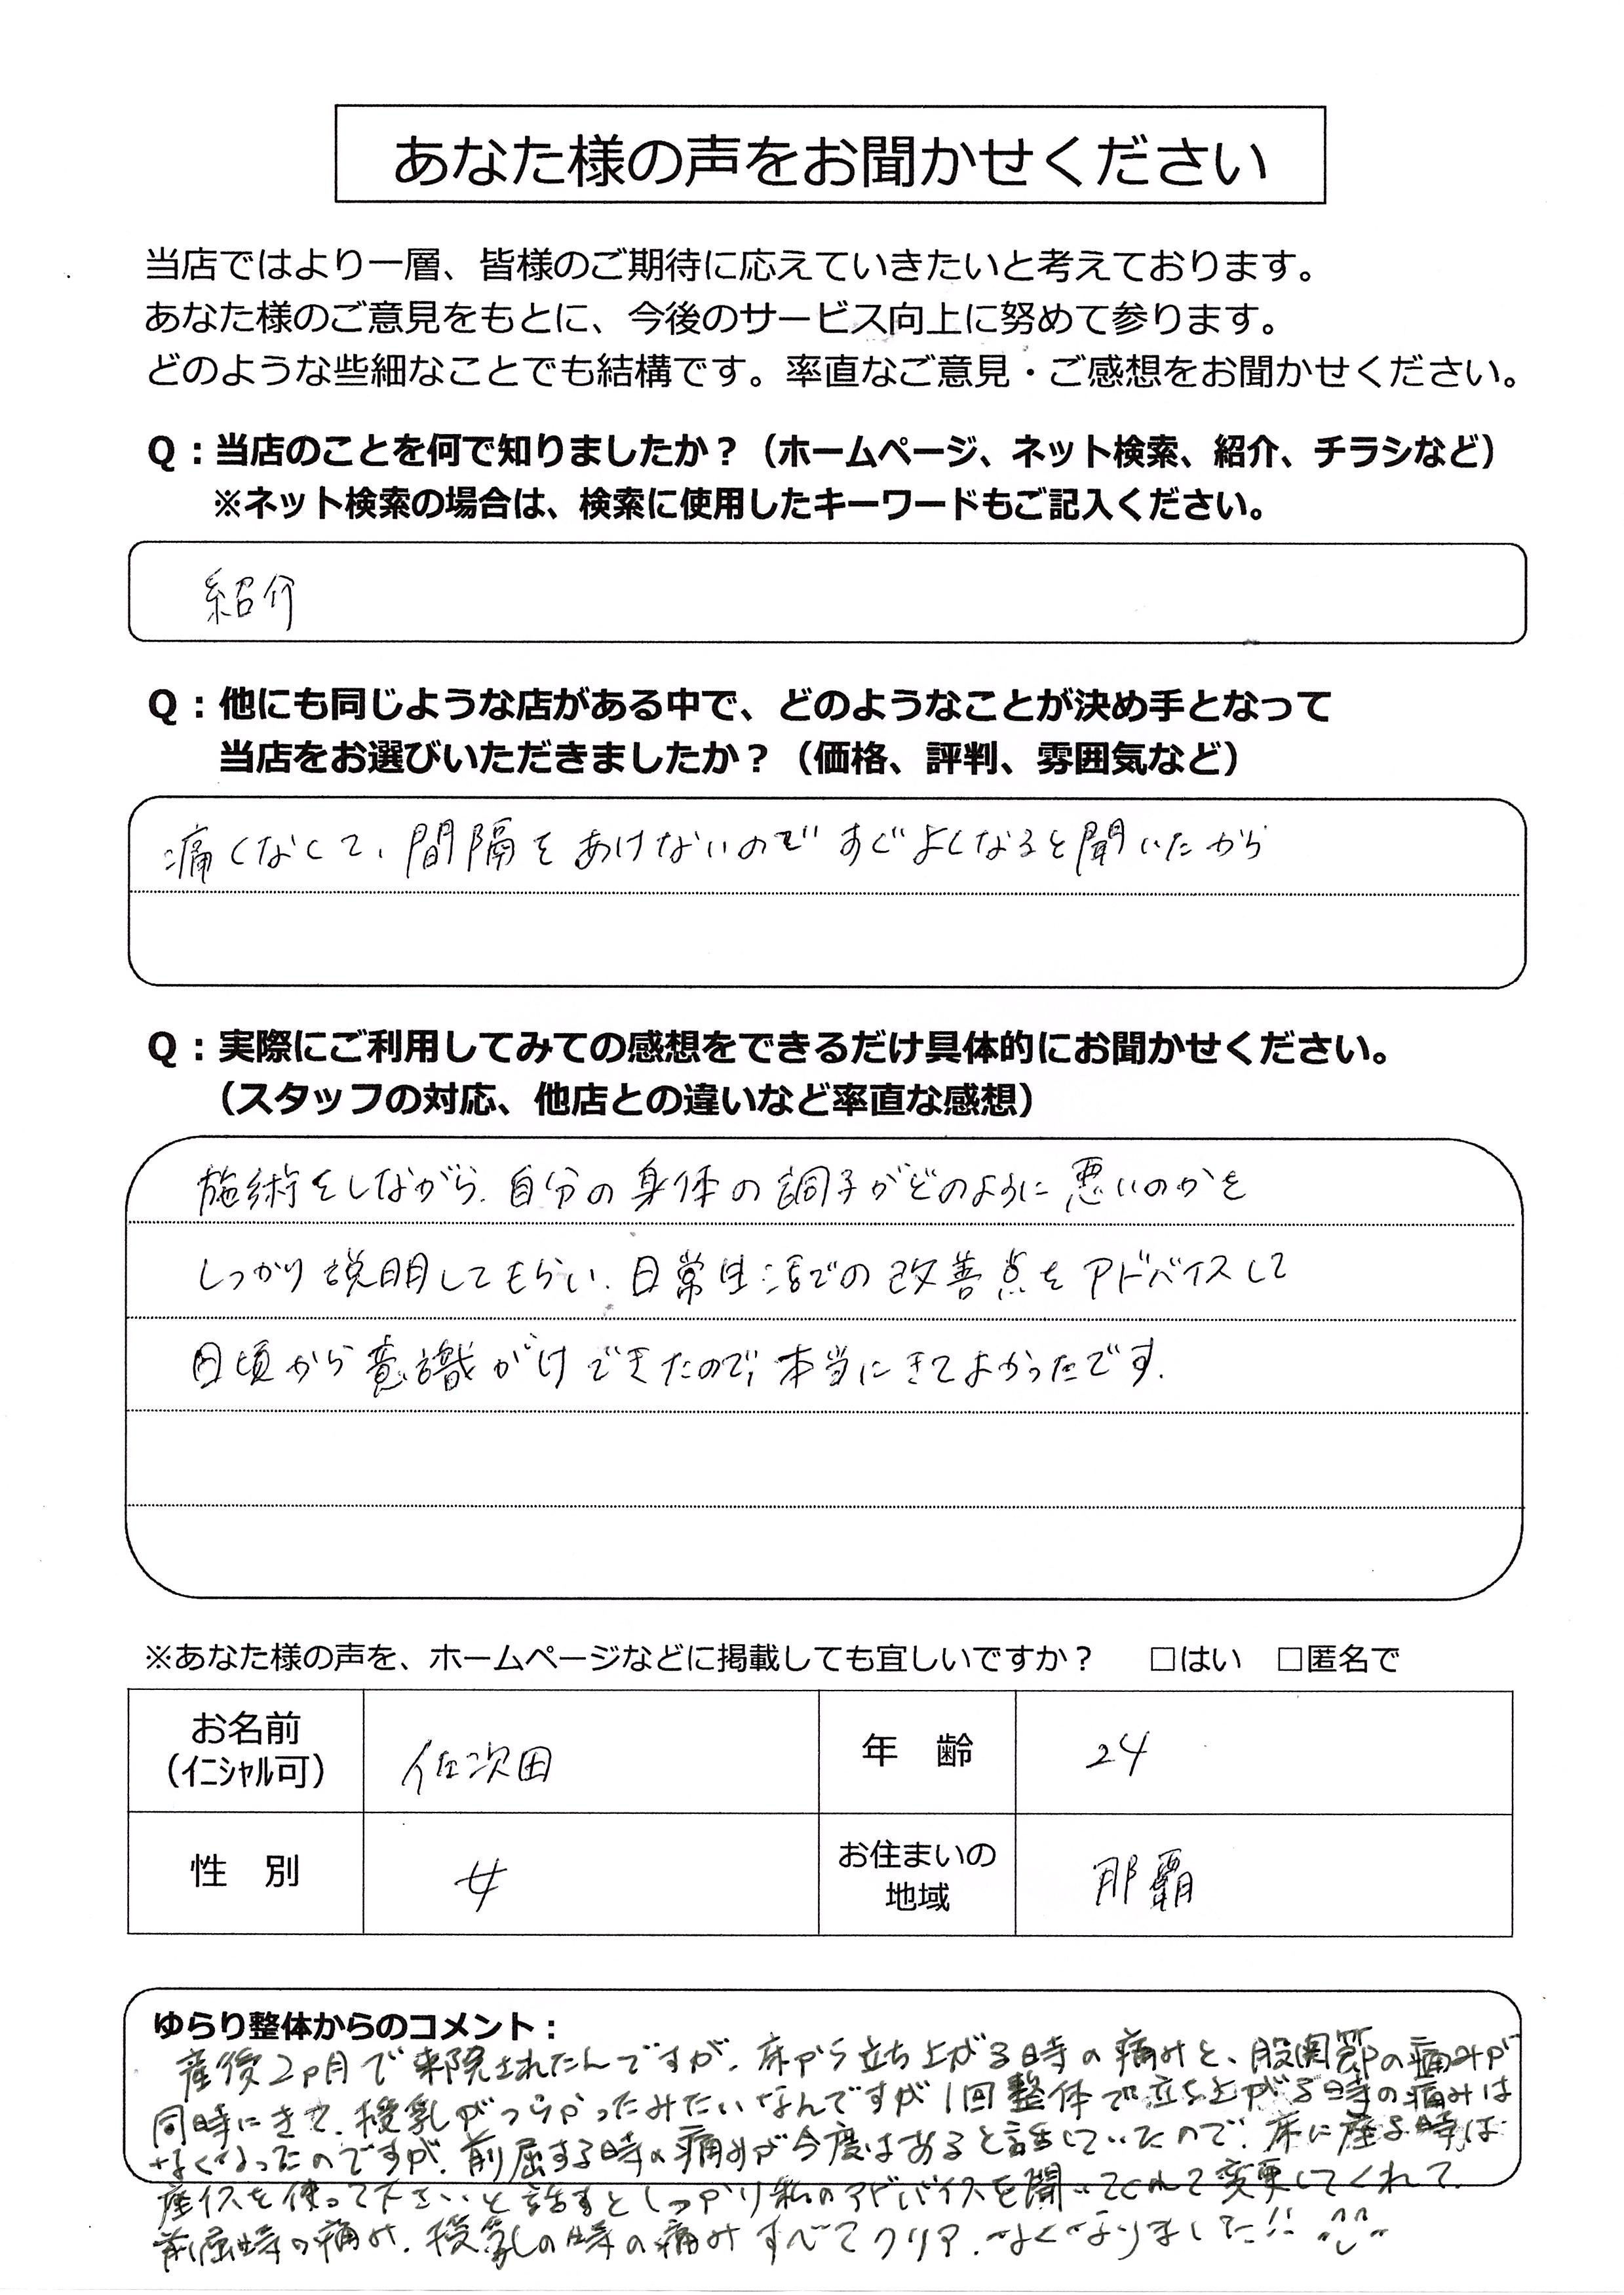 あなた様の声をお聞かせください
当店ではより一層、皆様のご期待に応えていきたいと考えております。
あなた様のご意見をもとに、今後のサービス向上に努めて参ります。
どのような些細なことでも結構です。率直なご意見・ご感想をお聞かせください。
Q：当店のことを何で知りましたか？（ホームページ、ネット検索、紹介、チラシなど）
※ネット検索の場合は、検索に使用したキーワードもご記入ください。
紹介
Q：他にも同じような店がある中で、どのようなことが決め手となって
当店をお選びいただきましたか？（価格、評判、雰囲気など）
痛くなくて、間隔をあけないのですぐよくなると聞いたから
Q：実際にご利用してみての感想をできるだけ具体的にお聞かせください。
（スタッフの対応、他店との違いなど率直な感想）
施術をしながら、自分の身体の調子がどのように悪いのかを
しっかり説明してもらい、日常生活での改善点をアドバイスして
日頃から意識がけできたので、本当にきてよかったです.
※あなた様の声を、ホームページなどに掲載しても宜しいですか？　□はい　□匿名で
お名前
（ｲﾆｼｬﾙ可）
佐次田
年　齢
24
性　別
女
お住まいの
地域
那覇
ゆらり整体からのコメント：
産後2ヶ月で来院されたんですが、床から立ち上がる時の痛みと、股関節の痛みが
同時にきて、授乳がつらかったみたいなんですが1回整体で立ち上がる時の痛みは
なくなったのですが、前屈する時の痛みが今度はあると話していたので、床に座る時は
座イスを使って下さいと話すとしっかり私のアドバイスを聞いてくれて変更してくれて、
前屈時の痛み、授乳の時の痛みすべてクリア、なくなりました!!